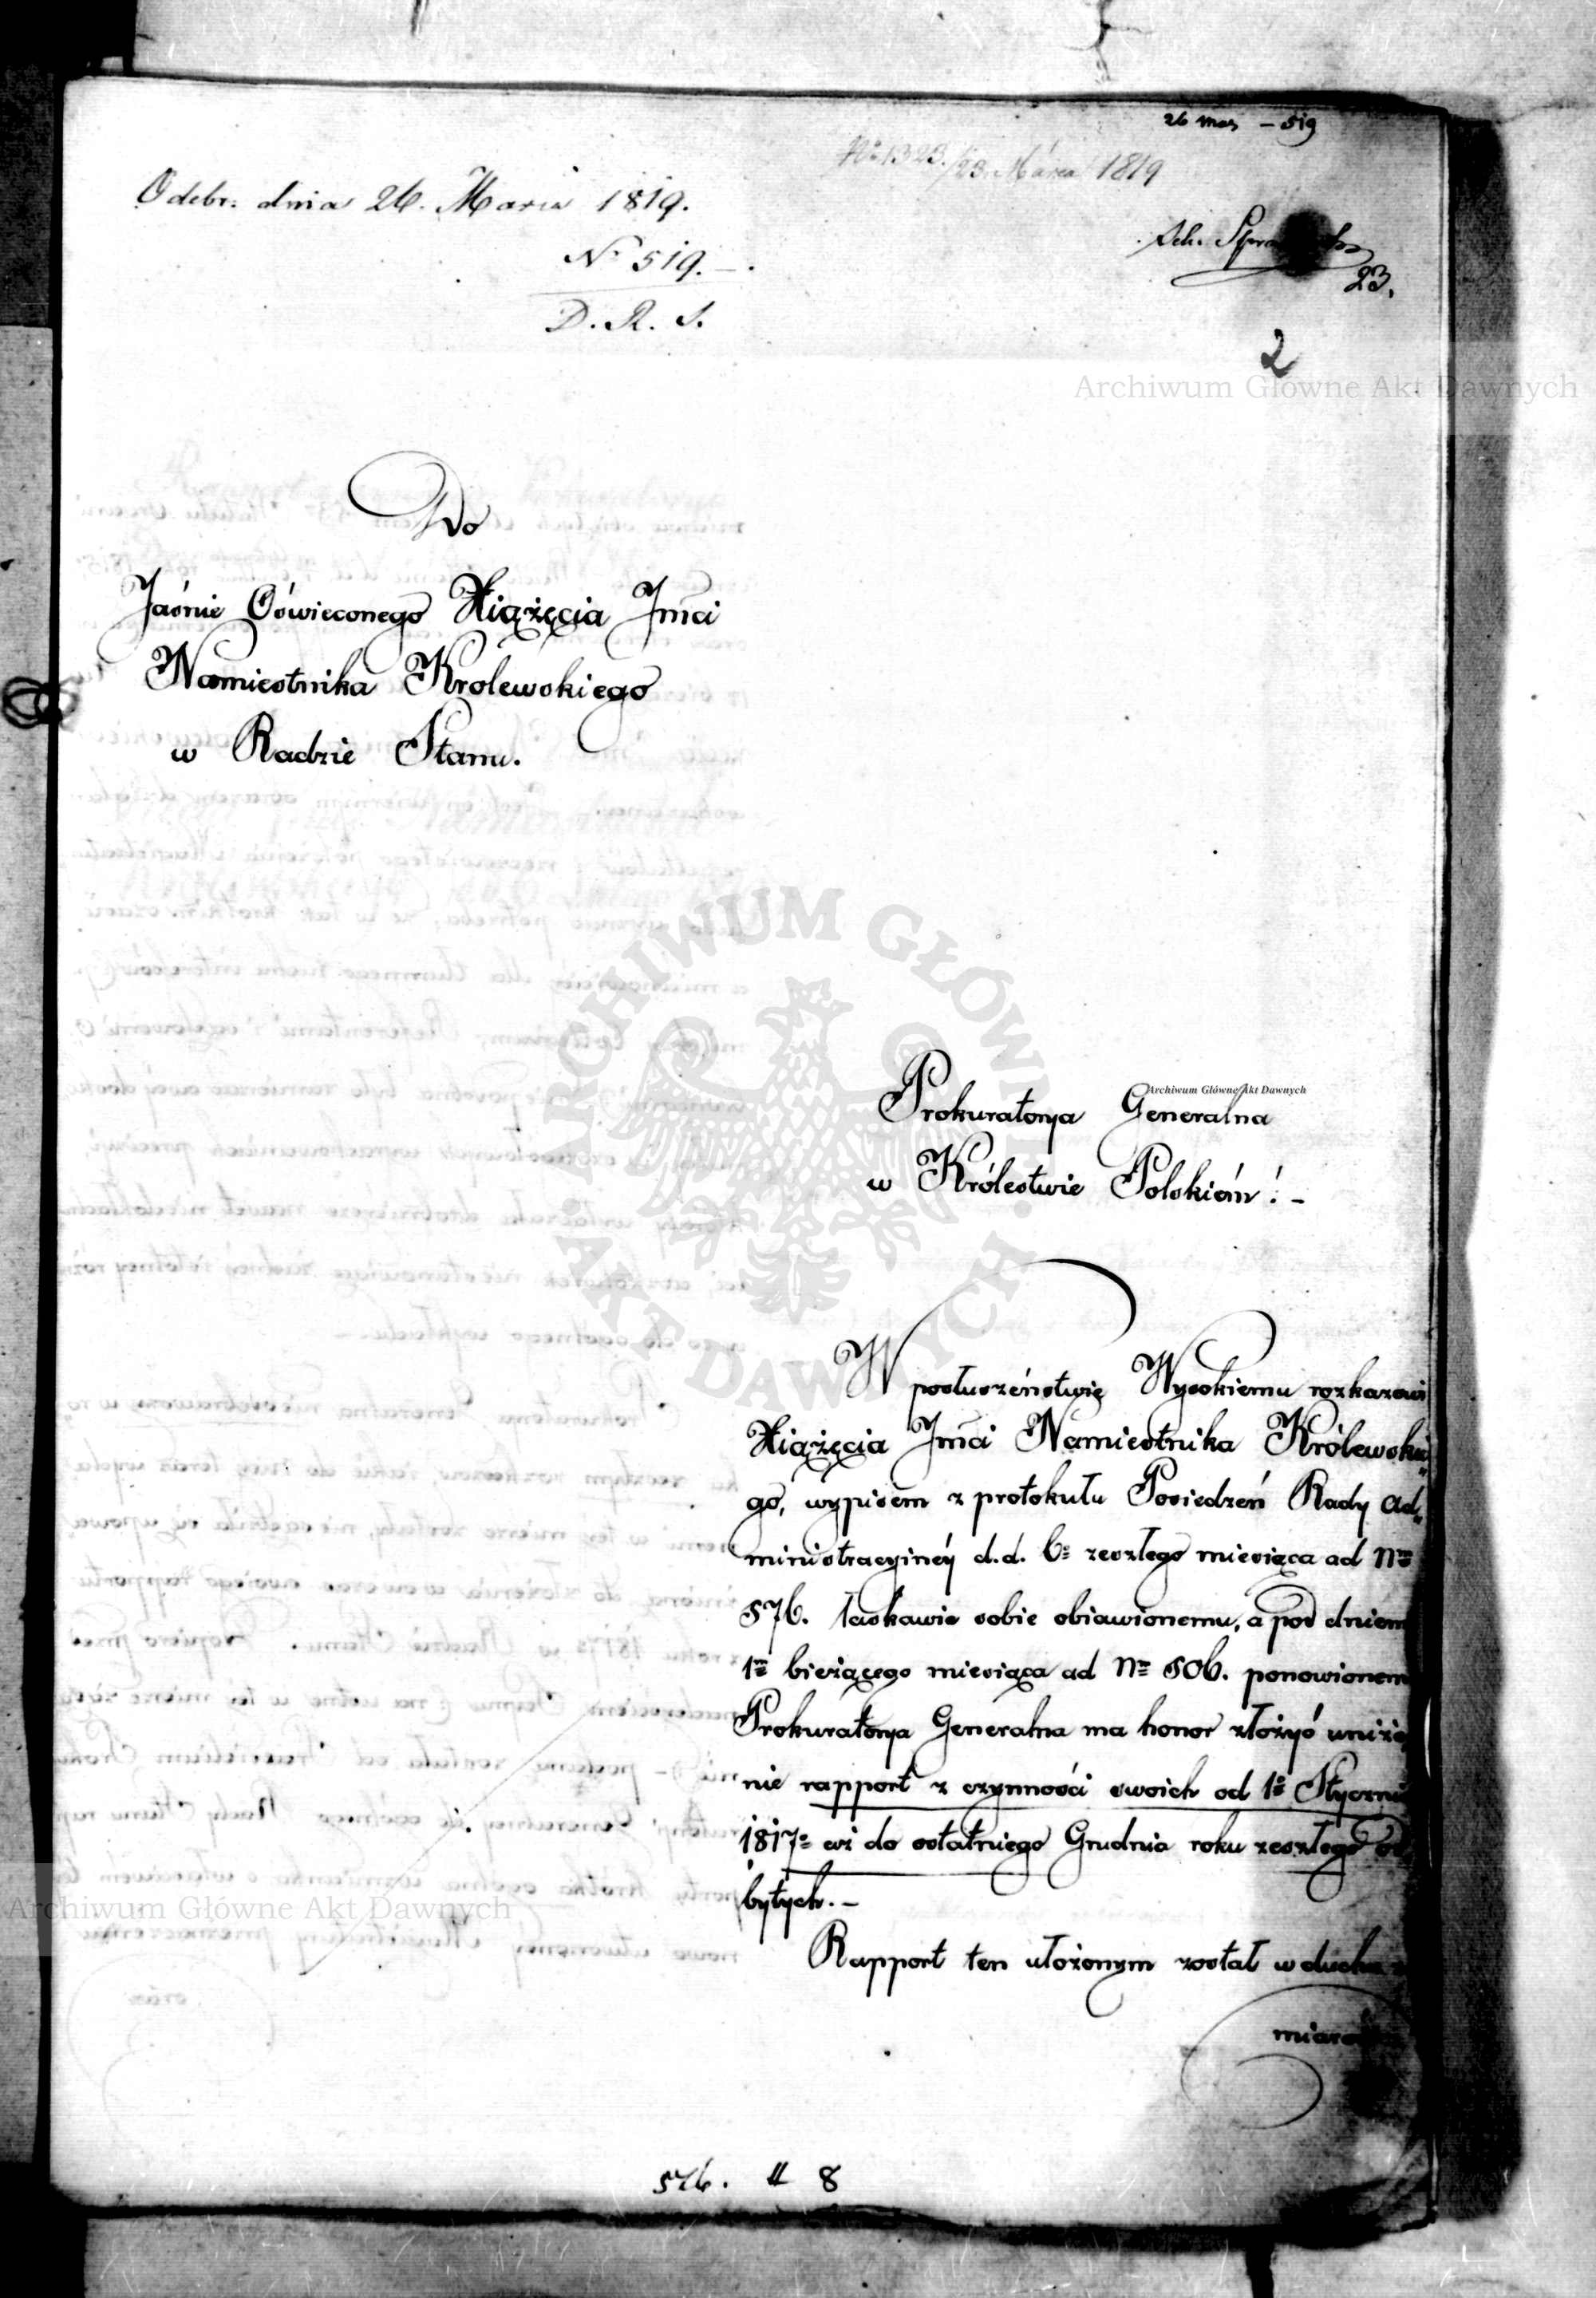 26 Mar – 519
No 1323./23. Marca 1819
Odebr: dnia 26. Marca 1819.
No 519.–.
D. R. S.
23.
2
Archiwum Główne Akt Dawnych
Do
Jaśnie Oświeconego Xiążęcia Jmci
Namiestnika Krolewskiego
w Radzie Stanu.
ARCHIWUM GŁÓWNE
AKT DAWNYCH
Archiwum Główne Akt Dawnych
Prokuratorya Generalna
w Królestwie Polskiém! –
W posłuszeństwie Wysokiemu rozkazowi
Xiążęcia Jmci Namiestnika Królewskie„
go, wypisem z protokułu Posiedzeń Rady Ad„
ministracyinéy d.d. 6o zeszłego miesiąca ad Nrm
576. łaskawie sobie obiawionemu, a pod dniem
1m bieżącego miesiąca ad Nrm 506. ponowionemu
Prokuratorya Generalna ma honor złożyć uniże„
nie rapport z czynności swoich od 1o Stycznia
1817o aż do ostatniego Grudnia roku zeszłego od
bytych. –
Rapport ten ułożonym został w duchu
Archiwum Główne Akt Dawnych
576. 11 8